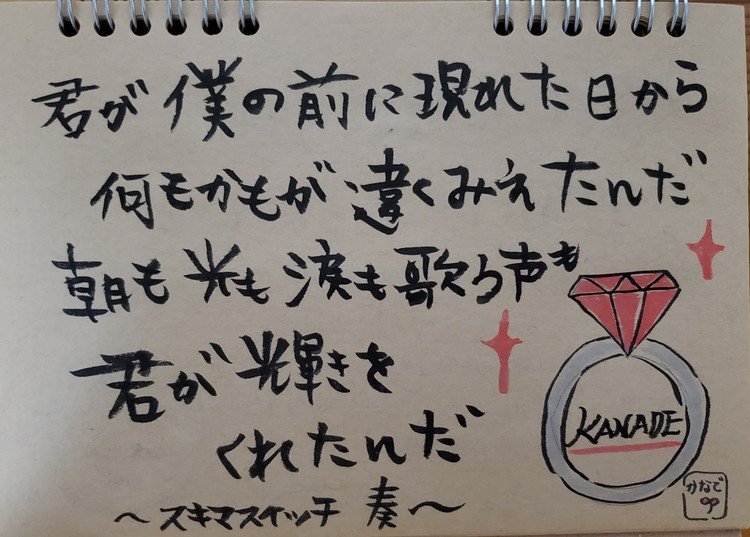 君が僕の前に現れた日から
何もかもが違くみえたんだ
朝も光も涙も歌う声も
君が輝きを
くれたんだ
〜スキマスイッチ 奏〜
KANADE
かなで